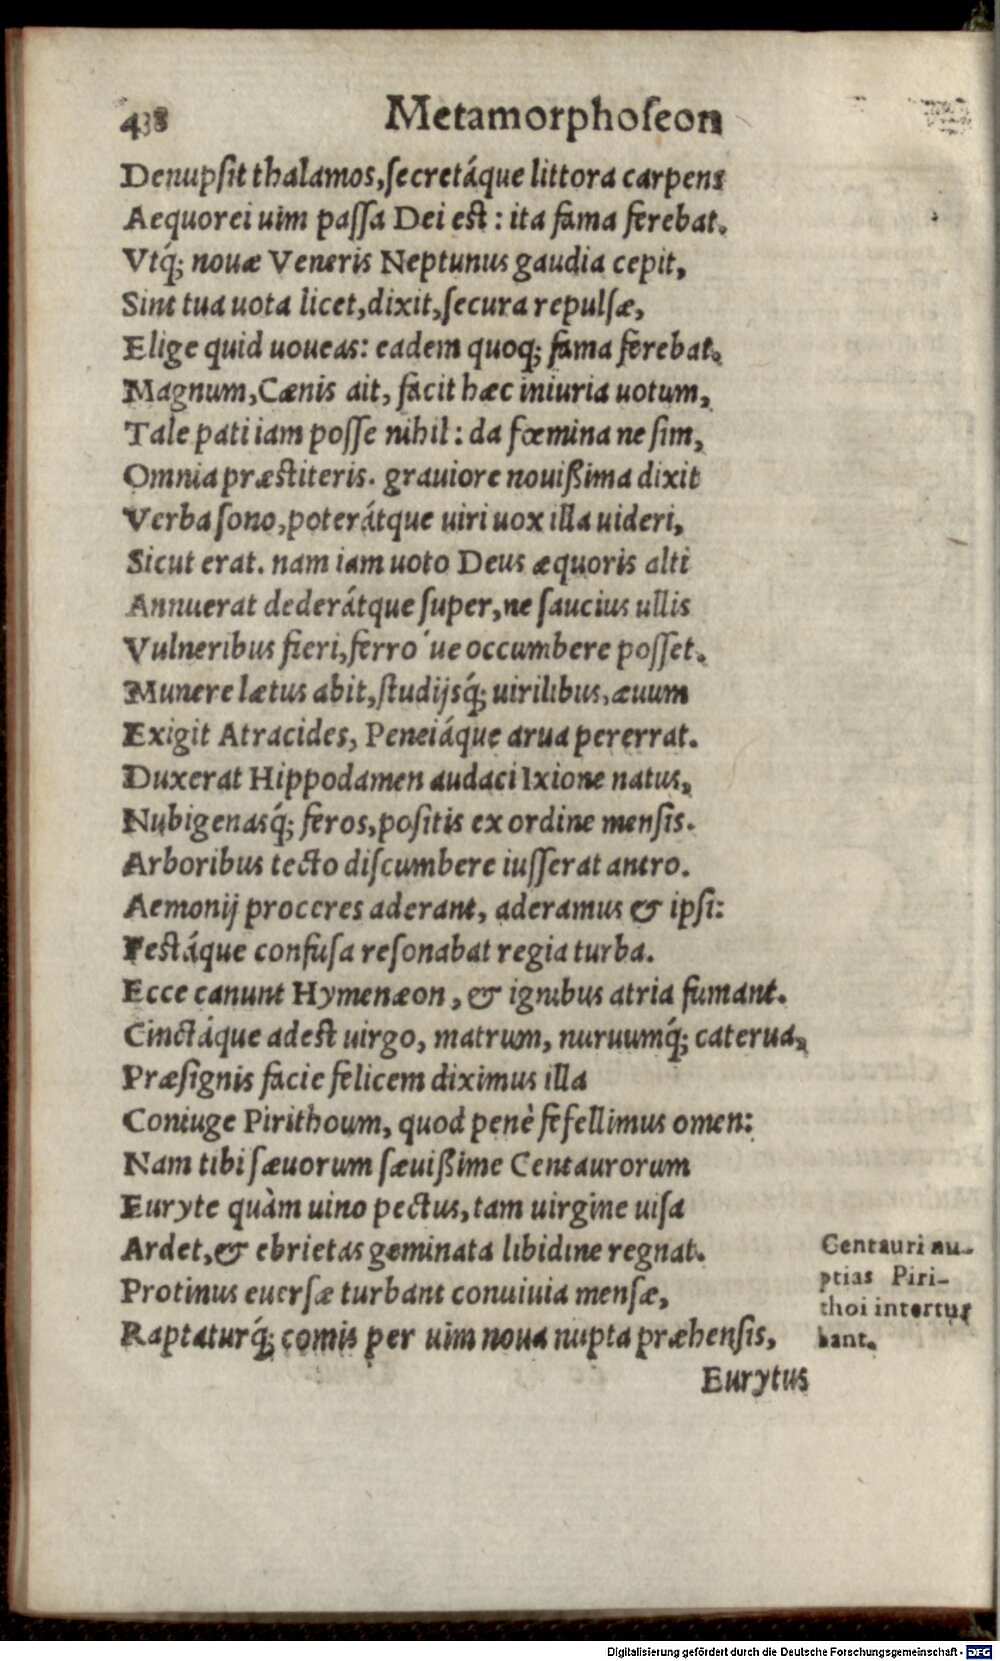 438 Metamorphoſeon
Denupſit thalamos,ſecretáque littora carpens
Aequorei uim paſſa Dei est : ita fama ferebat.
Vtq́; nouæ Veneris Neptunus gaudia cepit,
Sint tua uota licet,dixit,ſecura repulſæ,
Elige quid uoueas: eadem quoq; fama ferebat.
Magnum,Cænis ait, facit hæc iniuria uotum,
Tale pati iam poſſe nihil : da fœmina ne ſim,
Omnia præstiteris. grauiore nouißima dixit
Verba ſono,poterátque uiri uox illa uideri,
Sicut erat. nam iam uoto Deus æquoris alti
Annuerat dederátque ſuper,ne ſaucius ullis
Vulneribus fieri,ferro´ue occumbere poſſet.
Munere lætus abit,ſtudijsq́; uirilibus,æuum
Exigit Atracides, Peneiáque arua pererrat.
Duxerat Hippodamen audaci Ixione natus,
Nubigenasq́; feros,poſitis ex ordine menſis.
Arboribus tecto diſcumbere iuſſerat antro.
Aemonij proceres aderant, aderamus & ipſi:
Festáque confuſa reſonabat regia turba.
Ecce canunt Hymenæon , & ignibus atria fumant.
Cinctáque adest uirgo, matrum, nuruumq́; caterua,
Præſignis facie felicem diximus illa
Coniuge Pirithoum, quod penè fefellimus omen:
Nam tibi ſæuorum ſæuißime Centaurorum
Euryte quàm uino pectus,tam uirgine uiſa
Ardet,& ebrietas geminata libidine regnat.
Protinus euerſæ turbant conuiuia menſæ,
Raptaturq́; comis per uim noua nupta præhenſis,
Eurytus
Centauri nu-
ptias Piri-
thoi intertur
bant.
Digitalisierung gefördert durch die Deutsche Forschungsgemeinschaft - DFG